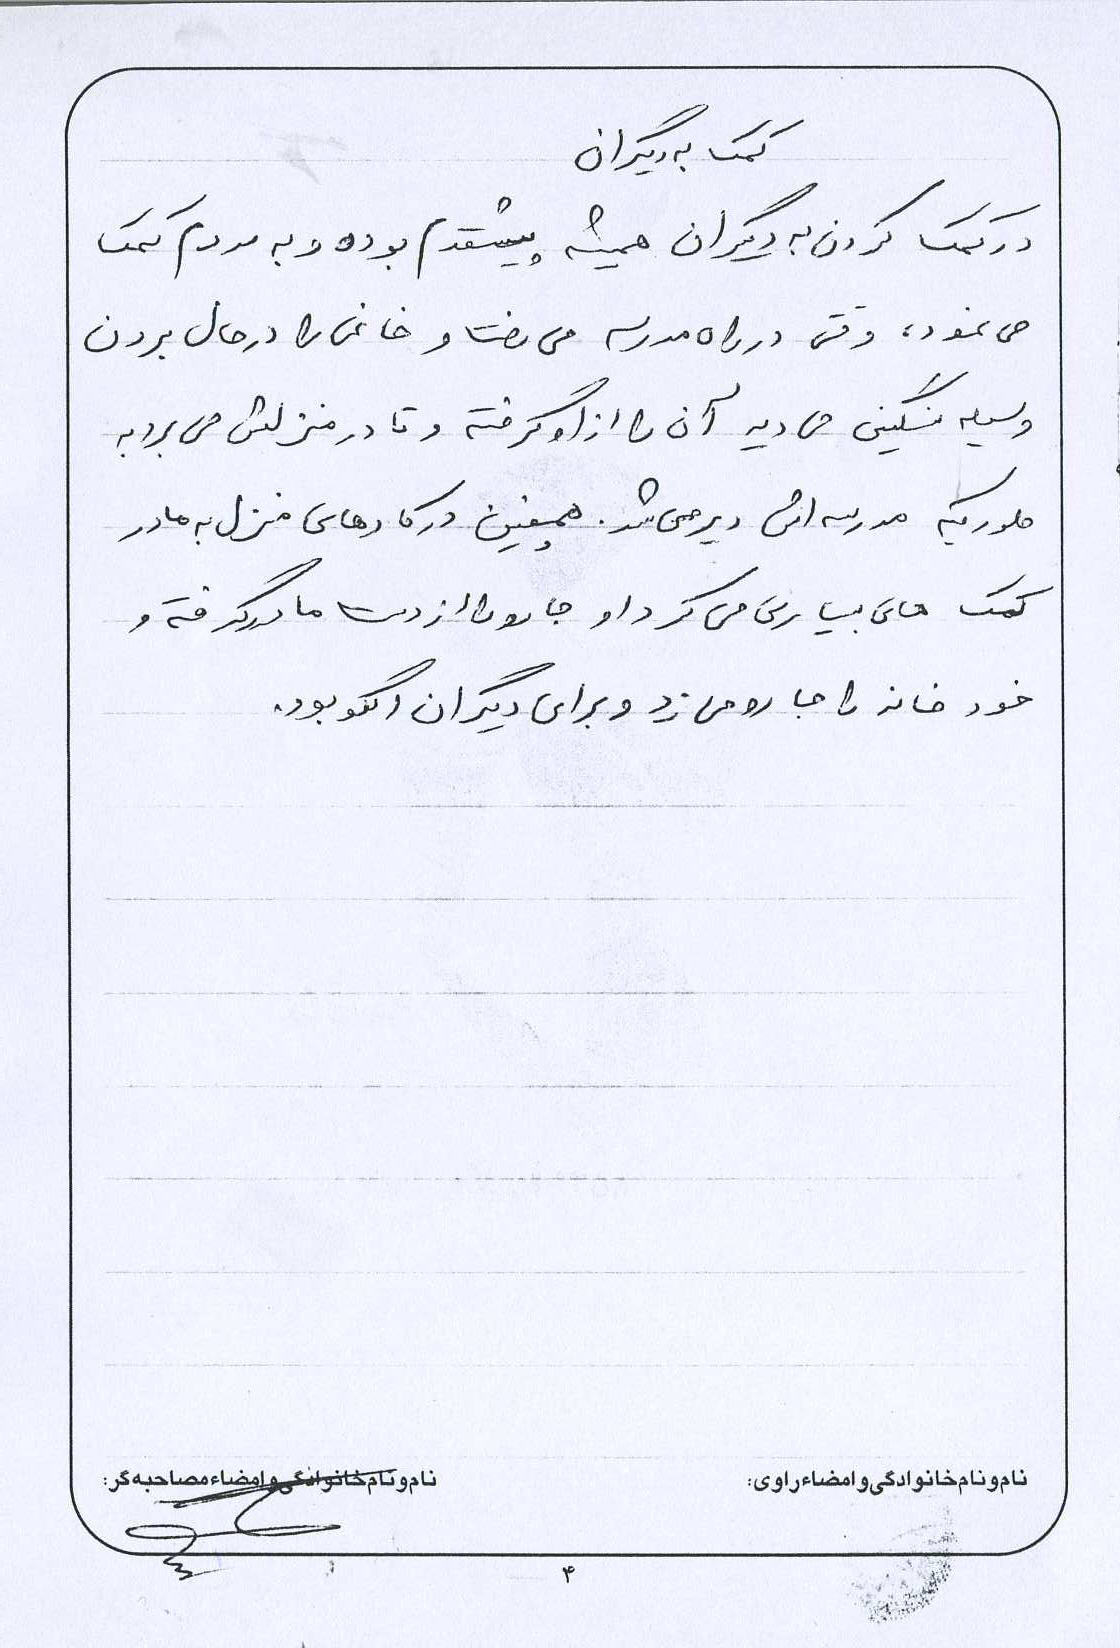 کمک به دیگران
در کمک کردن به دیگران همیشه پیشقدم بوده و به مردم کمک
می نمود، وقتی در راه مدرسه می رفت و خانمی را در حال بردن
وسیله سنگینی می دید آن را از او گرفته و تا در منزلش می برد به
طوریکه مدرسه اش دیر می شد. همچنین در کارهای منزل به مادر
کمک های بسیاری می کرد او جارو را از دست مادر گرفته و
خود خانه را جارو می زد و برای دیگران الگو بود.
نام و نام خانوادگی و امضاء راوی:
نام و نام خانوادگی و امضاء مصاحبه گر:
۴